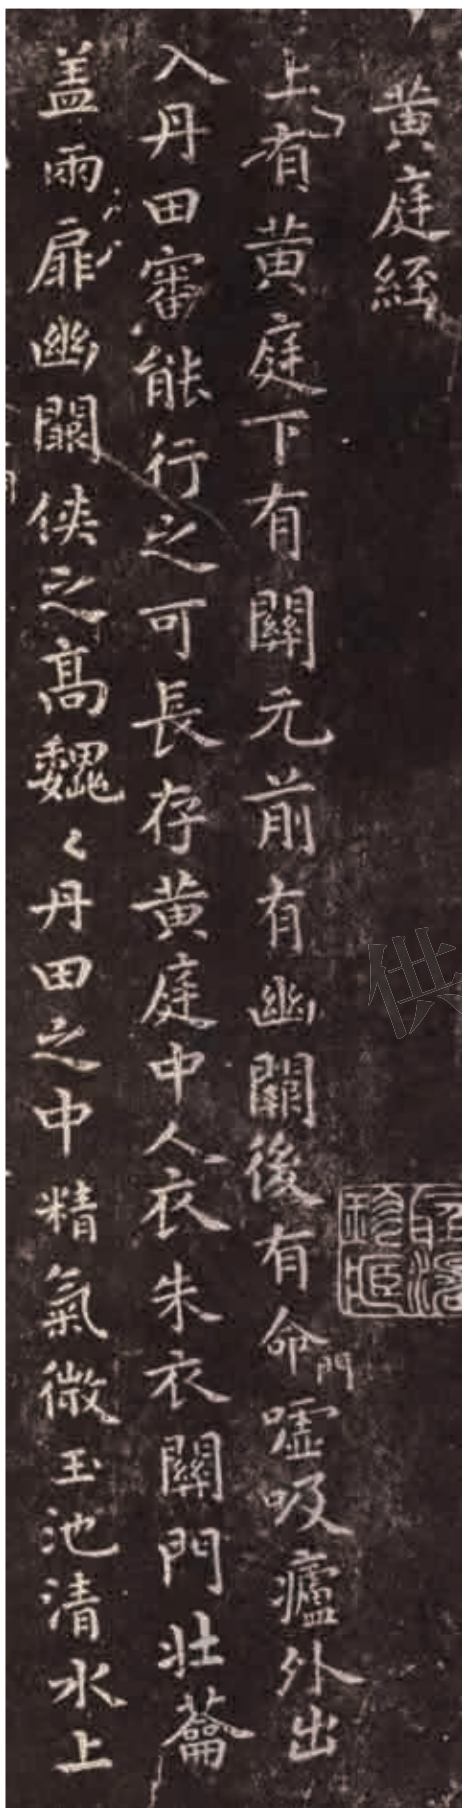 黄庭經
上有黄庭下有關元前有幽闕後有命門噓吸廬外出
入丹田審能行之可長存黄庭中人衣朱衣關門壮蘥
盖兩扉幽闕侠之高魏〻丹田之中精氣微玉池清水上
供